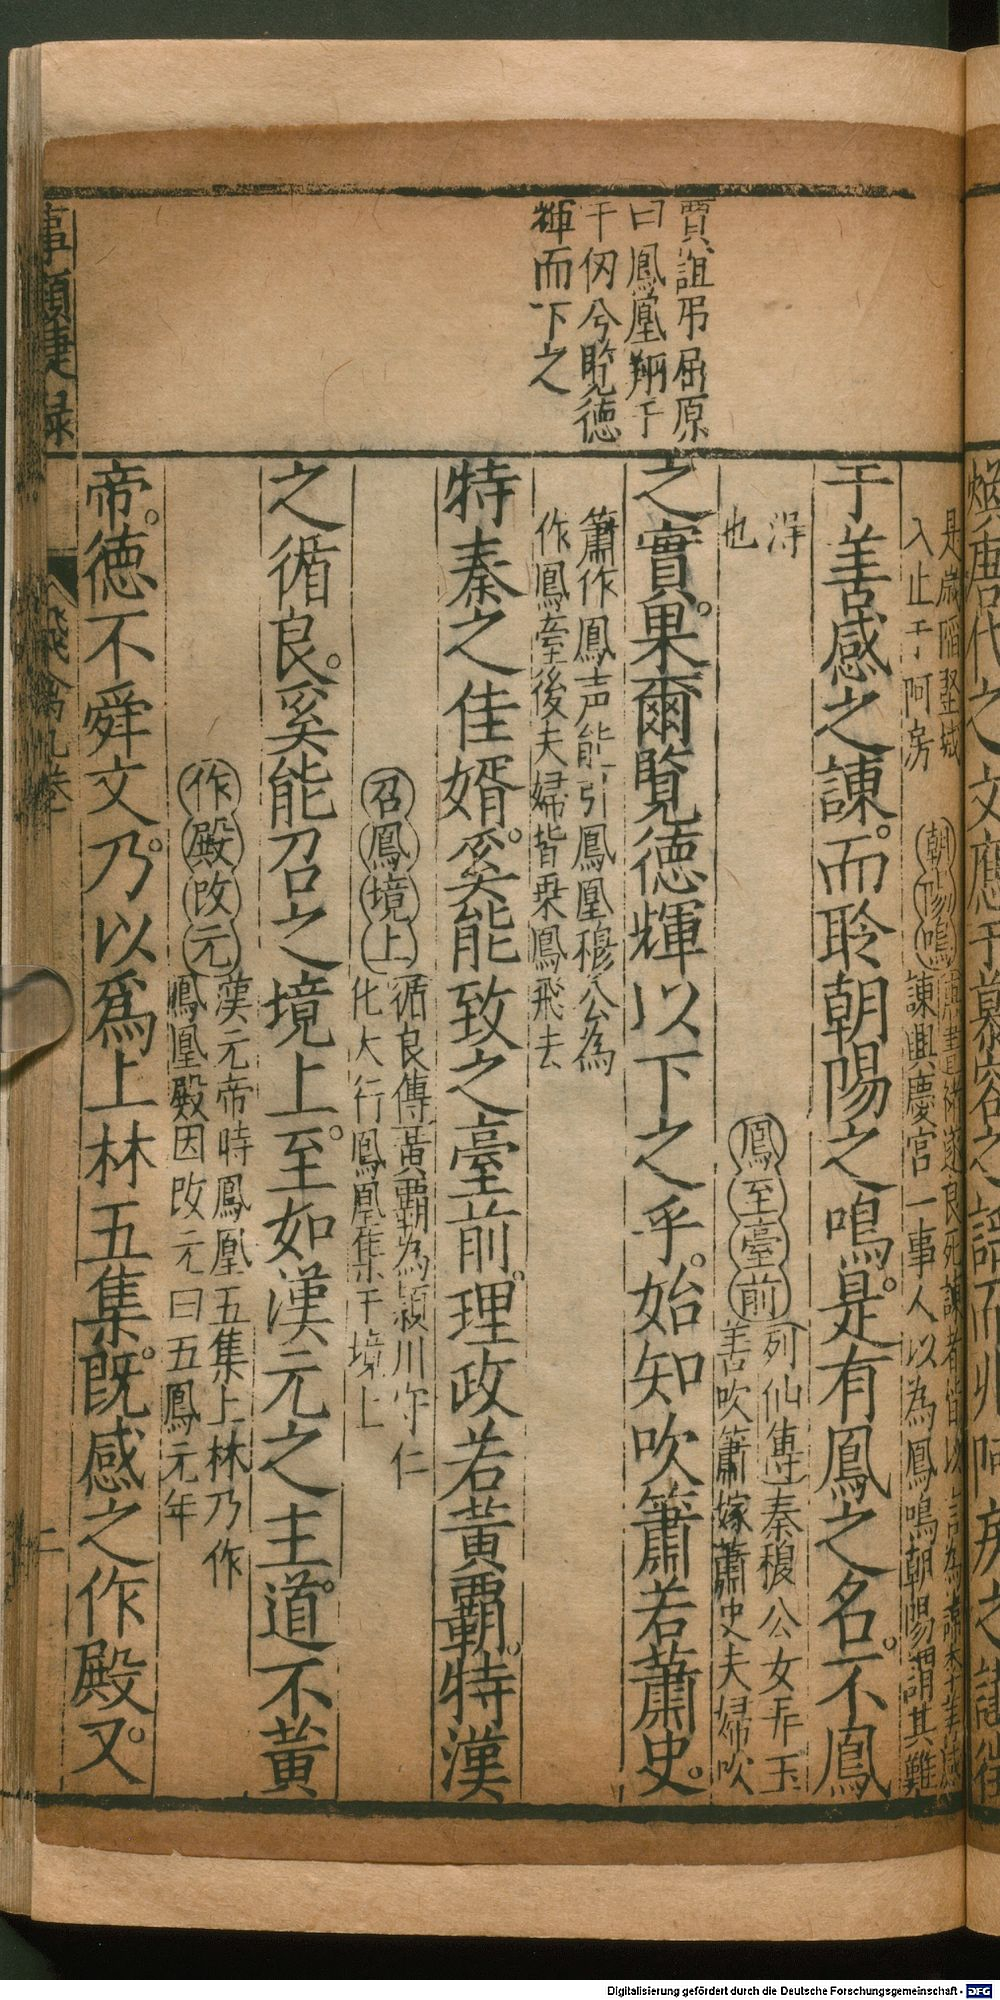 賈誼弔屈原
曰鳳凰翔于
千仞兮覧徳
輝而下之
是歳陥堅城
入止于阿房
朝陽鳴
遂良死諌者皆以言為諱
諌興慶宮一事人以為鳳鳴朝陽謂其難
于善感之諌。而聆朝陽之鳴。是有鳳之名。不鳳
淂
也
鳳至臺前
列仙傳秦穆公女弄玉
善吹簫嫁蕭史夫婦吹
之實。果爾覧徳輝以下之乎。始知吹簫若蕭史。
簫作鳳声能引鳳凰穆公為
作鳳臺後夫婦皆乗鳳飛去
特秦之佳婿。奚能致之臺前。理政若黄覇。特漢
召鳳境上
循良傳黄覇為潁川守仁
化大行鳳凰集于境上
之循良。奚能召之境上。至如漢元之主。道不黄
作殿改元
漢元帝時鳳凰五集上林乃作
鳳凰殿因改元曰五鳳元年
帝。徳不舜文。乃以為上林五集。既感之作殿。又
事類捷録
飛禽九巻
二
Digitalisierung gefördert durch die Deutsche Forschungsgemeinschaft - DFG